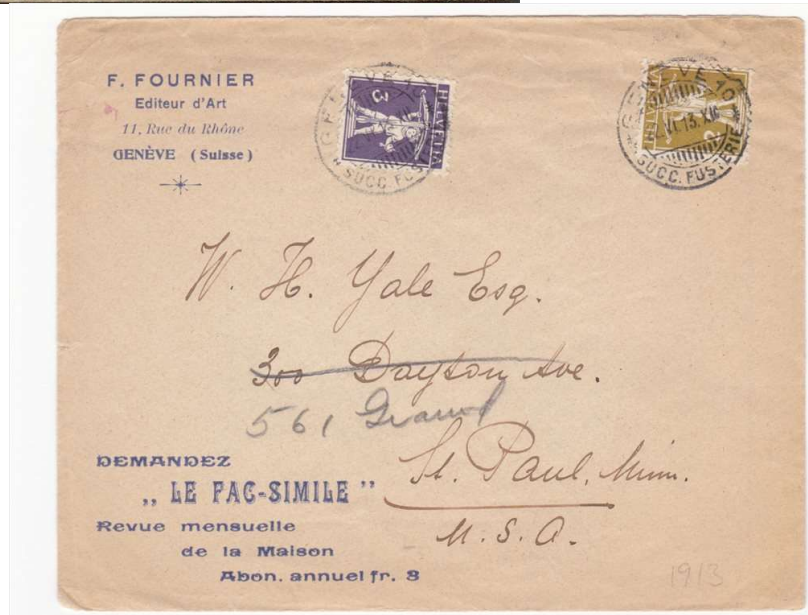 F. FOURNIER
Editeur d'Art
11, Rue du Rhône
GENÈVE (Suisse)
3
HELVETIA
GENÈVE
SUCC. FUS
HELVETIA
2
GENÈVE-10
VI.13.XII
SUCC. FUSTERIE
W. H. Yale Esq.
300 Dayton Ave.
561 Grand
St. Paul, Minn.
U. S. A.
DEMANDEZ
„ LE FAC-SIMILE "
Revue mensuelle
de la Maison
Abon. annuel fr. 3
1913